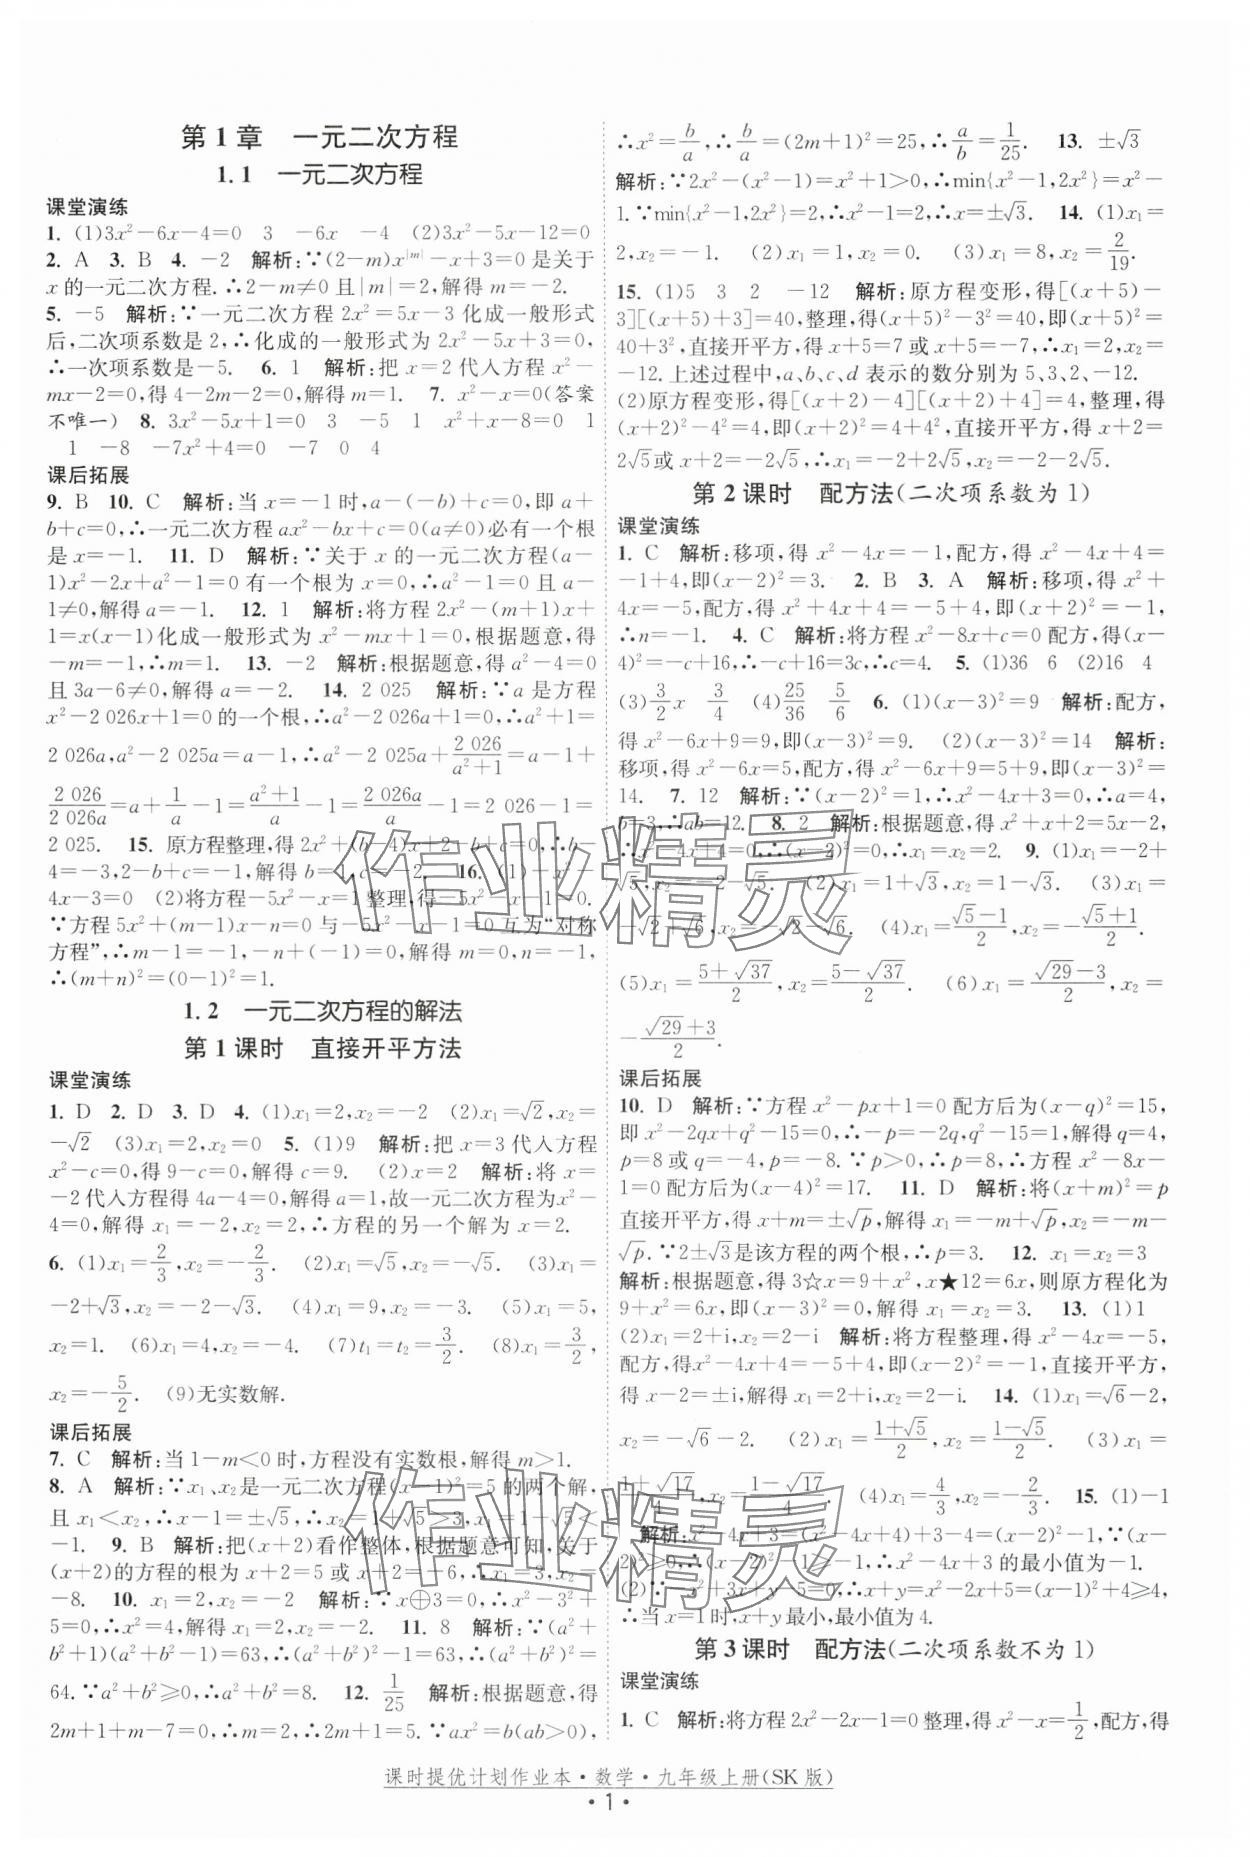 第1章 一元二次方程
1.1 一元二次方程
课堂演练
1. (1)3x²−6x−4=0 3 −6x −4 (2)3x²−5x−12=0
2. A 3. B 4. −2 解析:∵(2−m)x^|m|−x+3=0是关于
x的一元二次方程.∴2−m≠0且|m|=2,解得m=−2.
5. −5 解析:∵一元二次方程2x²=5x−3化成一般形式
后,二次项系数是2,∴化成的一般形式为2x²−5x+3=0,
∴一次项系数是−5. 6. 1 解析:把x=2代入方程x²−
mx−2=0,得4−2m−2=0,解得m=1. 7. x²−x=0(答案
不唯一) 8. 3x²−5x+1=0 3 −5 1 x²+x−8=0 1
1 −8 −7x²+4=0 −7 0 4
课后拓展
9. B 10. C 解析:当x=−1时,a−(−b)+c=0,即a+
b+c=0,∴一元二次方程ax²−bx+c=0(a≠0)必有一个根
是x=−1. 11. D 解析:∵关于x的一元二次方程(a−
1)x²−2x+a²−1=0有一个根为x=0,∴a²−1=0且a−
1≠0,解得a=−1. 12. 1 解析:将方程2x²−(m+1)x+
1=x(x−1)化成一般形式为x²−mx+1=0,根据题意,得
−m=−1,∴m=1. 13. −2 解析:根据题意,得a²−4=0
且3a−6≠0,解得a=−2. 14. 2 025 解析:∵a是方程
x²−2 026x+1=0的一个根,∴a²−2 026a+1=0,∴a²+1=
2 026a,a²−2 025a=a−1,∴a²−2 025a+2 026/(a²+1)=a−1+
2 026/2 026a=a+1/a−1=(a²+1)/a−1=2 026a/a−1=2 026−1=
2 025. 15. 原方程整理,得2x²+(b−4)x+2−b+c=0,∴b−
4=−3,2−b+c=−1,解得b=1,c=−2. 16. (1)−x²−
4x−3=0 (2)将方程−5x²−x=1整理,得−5x²−x−1=0.
∵方程5x²+(m−1)x−n=0与−5x²−x−1=0互为“对称
方程”,∴m−1=−1,−n+(−1)=0,解得m=0,n=−1,
∴(m+n)²=(0−1)²=1.
1.2 一元二次方程的解法
第1课时 直接开平方法
课堂演练
1. D 2. D 3. D 4. (1)x₁=2,x₂=−2 (2)x₁=√2,x₂=
−√2 (3)x₁=2,x₂=0 5. (1)9 解析:把x=3代入方程
x²−c=0,得9−c=0,解得c=9. (2)x=2 解析:将x=
−2代入方程得4a−4=0,解得a=1,故一元二次方程为x²−
4=0,解得x₁=−2,x₂=2,∴方程的另一个解为x=2.
6. (1)x₁=2/3,x₂=−2/3. (2)x₁=√5,x₂=−√5. (3)x₁=
−2+√3,x₂=−2−√3. (4)x₁=9,x₂=−3. (5)x₁=5,
x₂=1. (6)x₁=4,x₂=−4. (7)t₁=t₂=3/2. (8)x₁=3/2,
x₂=−5/2. (9)无实数解.
课后拓展
7. C 解析:当1−m<0时,方程没有实数根,解得m>1.
8. A 解析:∵x₁、x₂是一元二次方程(x−1)²=5的两个解,
且x₁<x₂,∴x−1=±√5,∴x₂=1+√5>3,x₁=1−√5<
−1. 9. B 解析:把(x+2)看作整体,根据题意可知,关于
(x+2)的方程的根为x+2=5或x+2=−6,∴x=3或x=
−8. 10. x₁=2,x₂=−2 解析:∵x⊕3=0,∴x²−3²+
5=0,∴x²=4,解得x₁=2,x₂=−2. 11. 8 解析:∵(a²+
b²+1)(a²+b²−1)=63,∴(a²+b²)²−1=63,∴(a²+b²)²=
64.∵a²+b²≥0,∴a²+b²=8. 12. 1/25 解析:根据题意,得
2m+1+m−7=0,∴m=2,∴2m+1=5.∵ax²=b(ab>0),
∴x²=b/a,∴b/a=(2m+1)²=25,∴a/b=1/25. 13. ±√3
解析:∵2x²−(x²−1)=x²+1>0,∴min{x²−1,2x²}=x²−
1.∵min{x²−1,2x²}=2,∴x²−1=2,∴x=±√3. 14. (1)x₁=
2,x₂=−1. (2)x₁=1,x₂=0. (3)x₁=8,x₂=2/19.
15. (1)5 3 2 −12 解析:原方程变形,得[(x+5)−
3][(x+5)+3]=40,整理,得(x+5)²−3²=40,即(x+5)²=
40+3²,直接开平方,得x+5=7或x+5=−7,∴x₁=2,x₂=
−12.上述过程中,a、b、c、d表示的数分别为5、3、2、−12.
(2)原方程变形,得[(x+2)−4][(x+2)+4]=4,整理,得
(x+2)²−4²=4,即(x+2)²=4+4²,直接开平方,得x+2=
2√5或x+2=−2√5,∴x₁=−2+2√5,x₂=−2−2√5.
第2课时 配方法(二次项系数为1)
课堂演练
1. C 解析:移项,得x²−4x=−1,配方,得x²−4x+4=
−1+4,即(x−2)²=3. 2. B 3. A 解析:移项,得x²+
4x=−5,配方,得x²+4x+4=−5+4,即(x+2)²=−1,
∴n=−1. 4. C 解析:将方程x²−8x+c=0配方,得(x−
4)²=−c+16,∴−c+16=3c,∴c=4. 5. (1)36 6 (2)16 4
(3)3/2x 3/4 (4)25/36 5/6 6. (1)(x−3)²=9 解析:配方,
得x²−6x+9=9,即(x−3)²=9. (2)(x−3)²=14 解析:
移项,得x²−6x=5,配方,得x²−6x+9=5+9,即(x−3)²=
14. 7. 12 解析:∵(x−2)²=1,∴x²−4x+3=0,∴a=4,
b=3,∴ab=12. 8. 2 解析:根据题意,得x²+x+2=5x−2,
∴x²−4x+4=0,∴(x−2)²=0,∴x₁=x₂=2. 9. (1)x₁=−2+
√5,x₂=−2−√5. (2)x₁=1+√3,x₂=1−√3. (3)x₁=
−√2+√6,x₂=−√2−√6. (4)x₁=(√5−1)/2,x₂=−(√5+1)/2.
(5)x₁=(5+√37)/2,x₂=(5−√37)/2. (6)x₁=(√29−3)/2,x₂=
−(√29+3)/2.
课后拓展
10. D 解析:∵方程x²−px+1=0配方后为(x−q)²=15,
即x²−2qx+q²−15=0,∴−p=−2q,q²−15=1,解得q=4,
p=8或q=−4,p=−8.∵p>0,∴p=8,∴方程x²−8x−
1=0配方后为(x−4)²=17. 11. D 解析:将(x+m)²=p
直接开平方,得x+m=±√p,解得x₁=−m+√p,x₂=−m−
√p.∵2±√3是该方程的两个根,∴p=3. 12. x₁=x₂=3
解析:根据题意,得3☆x=9+x²,x★12=6x,则原方程化为
9+x²=6x,即(x−3)²=0,解得x₁=x₂=3. 13. (1)1
(2)x₁=2+i,x₂=2−i 解析:将方程整理,得x²−4x=−5,
配方,得x²−4x+4=−5+4,即(x−2)²=−1,直接开平方,
得x−2=±i,解得x₁=2+i,x₂=2−i. 14. (1)x₁=√6−2,
x₂=−√6−2. (2)x₁=(1+√5)/2,x₂=(1−√5)/2. (3)x₁=
(1+√17)/4,x₂=(1−√17)/4. (4)x₁=4/3,x₂=−2/3. 15. (1)−1
解析:x²−4x+3=(x²−4x+4)+3−4=(x−2)²−1,∵(x−
2)²≥0,∴(x−2)²−1≥−1,∴x²−4x+3的最小值为−1.
∴当x=1时,x+y最小,最小值为4.
第3课时 配方法(二次项系数不为1)
课堂演练
1. C 解析:将方程2x²−2x−1=0整理,得x²−x=1/2,配方,得
课时提优计划作业本·数学·九年级上册(SK版)
·1·
作业精灵
作业精灵